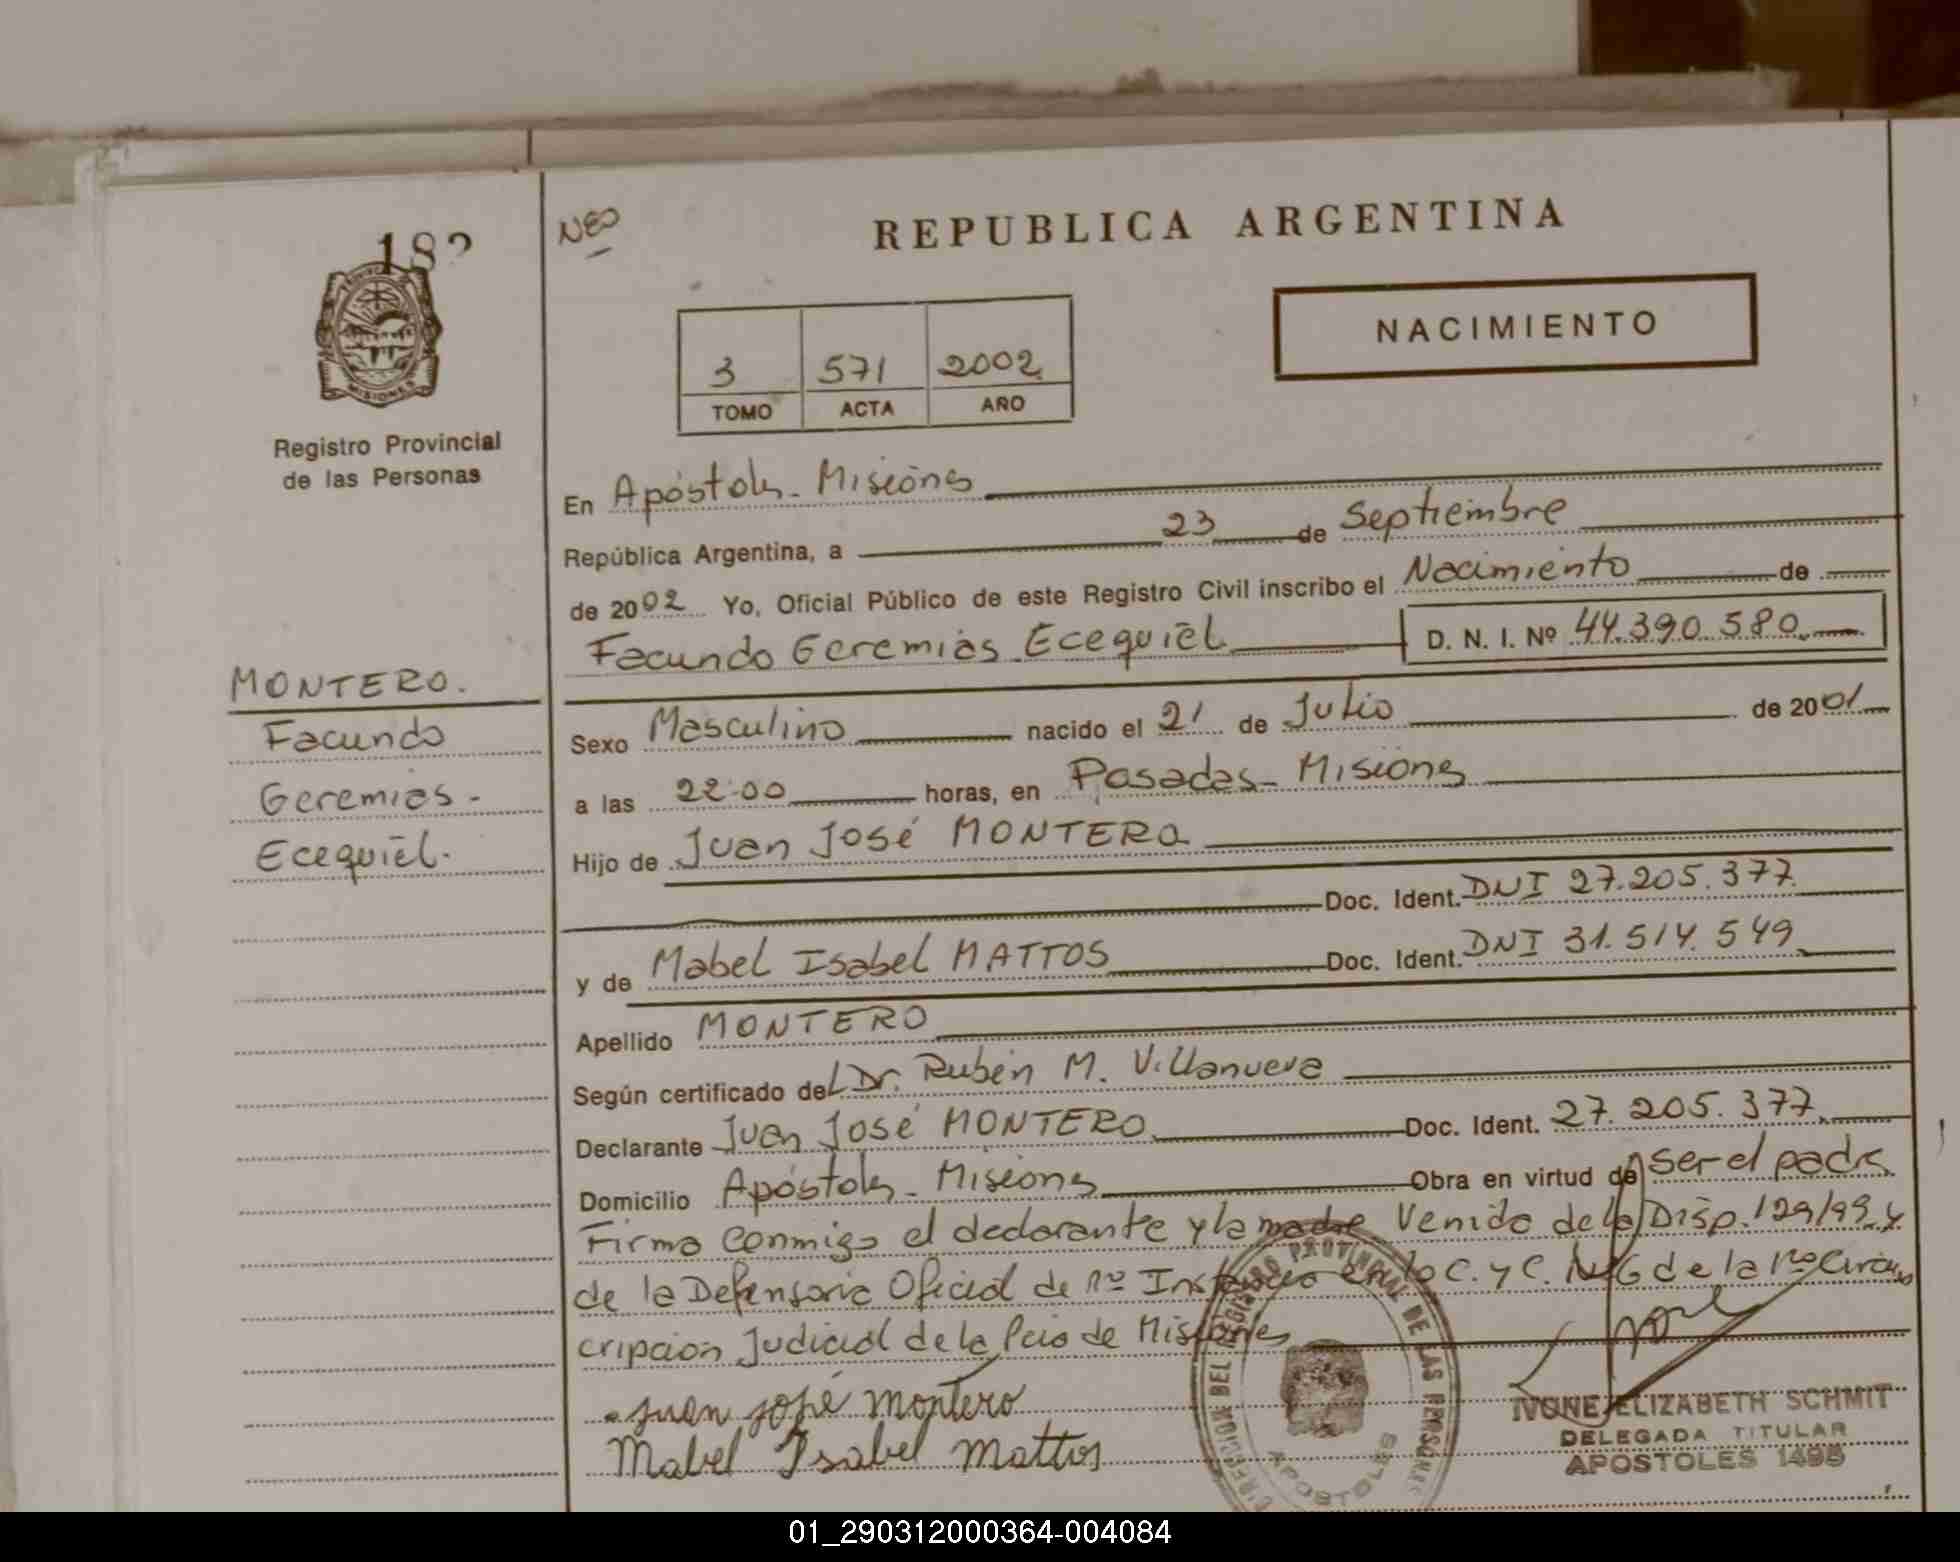 182
NEO
REPUBLICA ARGENTINA
MISIONES
Registro Provincial
de las Personas
NACIMIENTO
3 571 2002
TOMO ACTA AÑO
En Apóstoles - Misiones
República Argentina, a 23 de Septiembre
de 2002 Yo, Oficial Público de este Registro Civil inscribo el Nacimiento de
Facundo Geremias Ecequiel D. N. I. Nº 44.390.580
MONTERO.
Facundo
Geremias -
Ecequiel.
Sexo Masculino nacido el 21 de Julio de 2001
a las 22:00 horas, en Posadas - Misiones
Hijo de Juan José MONTERO
Doc. Ident. DNI 27.205.377
y de Mabel Isabel MATTOS Doc. Ident. DNI 31.514.549
Apellido MONTERO
Según certificado del Dr. Rubén M. Villanueva
Declarante Juan José MONTERO Doc. Ident. 27.205.377
Domicilio Apóstoles - Misiones Obra en virtud de ser el padre
Firma conmigo el declarante y la madre Venido de la Disp. 129/99 y
de la Defensoria Oficial de 1ra Instancia en lo C. y C. Nº 6 de la 1ra Circuns
cripcion Judicial de la Pcia de Misiones
Juan José Montero
Mabel Isabel Mattos
DIRECCION DEL REGISTRO PROVINCIAL DE LAS PERSONAS
APOSTOLES
IVONE ELIZABETH SCHMIT
DELEGADA TITULAR
APOSTOLES 1495
01_290312000364-004084